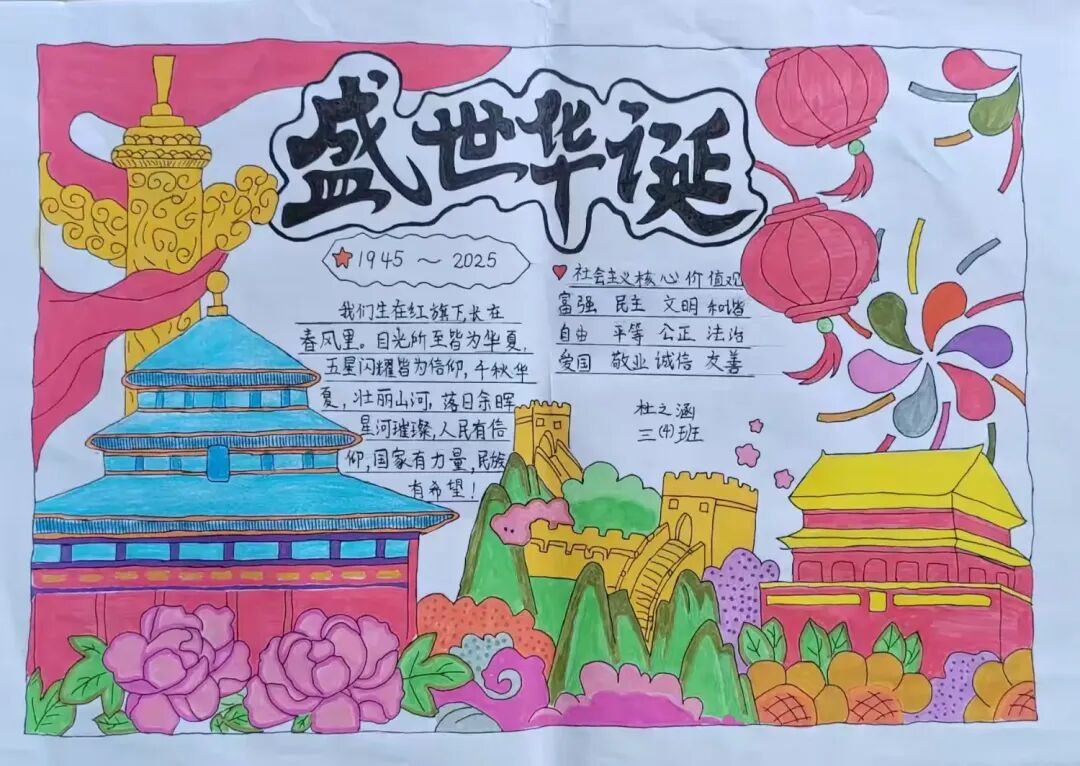 盛世华诞
1945 ～ 2025
我们生在红旗下,长在
春风里。目光所至皆为华夏,
五星闪耀皆为信仰,千秋华
夏,壮丽山河,落日余晖
星河璀璨,人民有信
仰,国家有力量,民族
有希望!
社会主义核心价值观
富强 民主 文明 和谐
自由 平等 公正 法治
爱国 敬业 诚信 友善
杜之涵
三(4)班